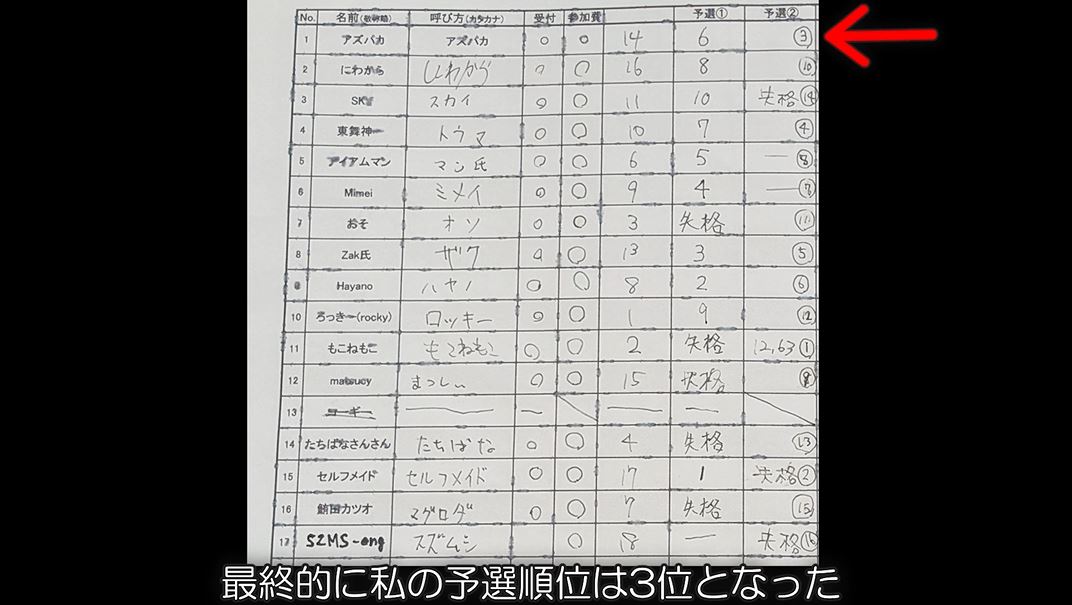 No. 名前(敬称略) 呼び方(カタカナ) 受付 参加費 予選① 予選②
1 アズパカ アズパカ ○ ○ 14 6 ③
2 にわから にわから ○ ○ 16 8 ⑩
3 スカイ ○ ○ 11 10 失格⑭
4 東舞神一 トウマ ○ ○ 10 7 ④
5 アイアムマン マン氏 ○ ○ 6 5 — ⑧
6 Mimei ミメイ ○ ○ 9 4 —
7 おそ オソ ○ ○ 3 失格 ⑪
8 Zak氏 ザク ○ ○ 13 3 ⑤
Hayano ハヤノ ○ ○ 8 2 ⑥
10 ろっきー(rocky) ロッキー ○ ○ 1 9 ⑫
11 もこねもこ もこねもこ ○ ○ 2 失格 12,63 ①
12 まっしぃ ○ ○ 15 失格
13 — — — —
14 たちばなさんさん たちばな ○ ○ 4 失格 ⑬
15 セルフメイド セルフメイド ○ ○ 17 1 失格②
16 鮪国カツオ マグロダ ○ ○ 7 失格 ⑮
17 S2MS-ong スズムシ ○ 18 — 失格⑯
最終的に私の予選順位は3位となった